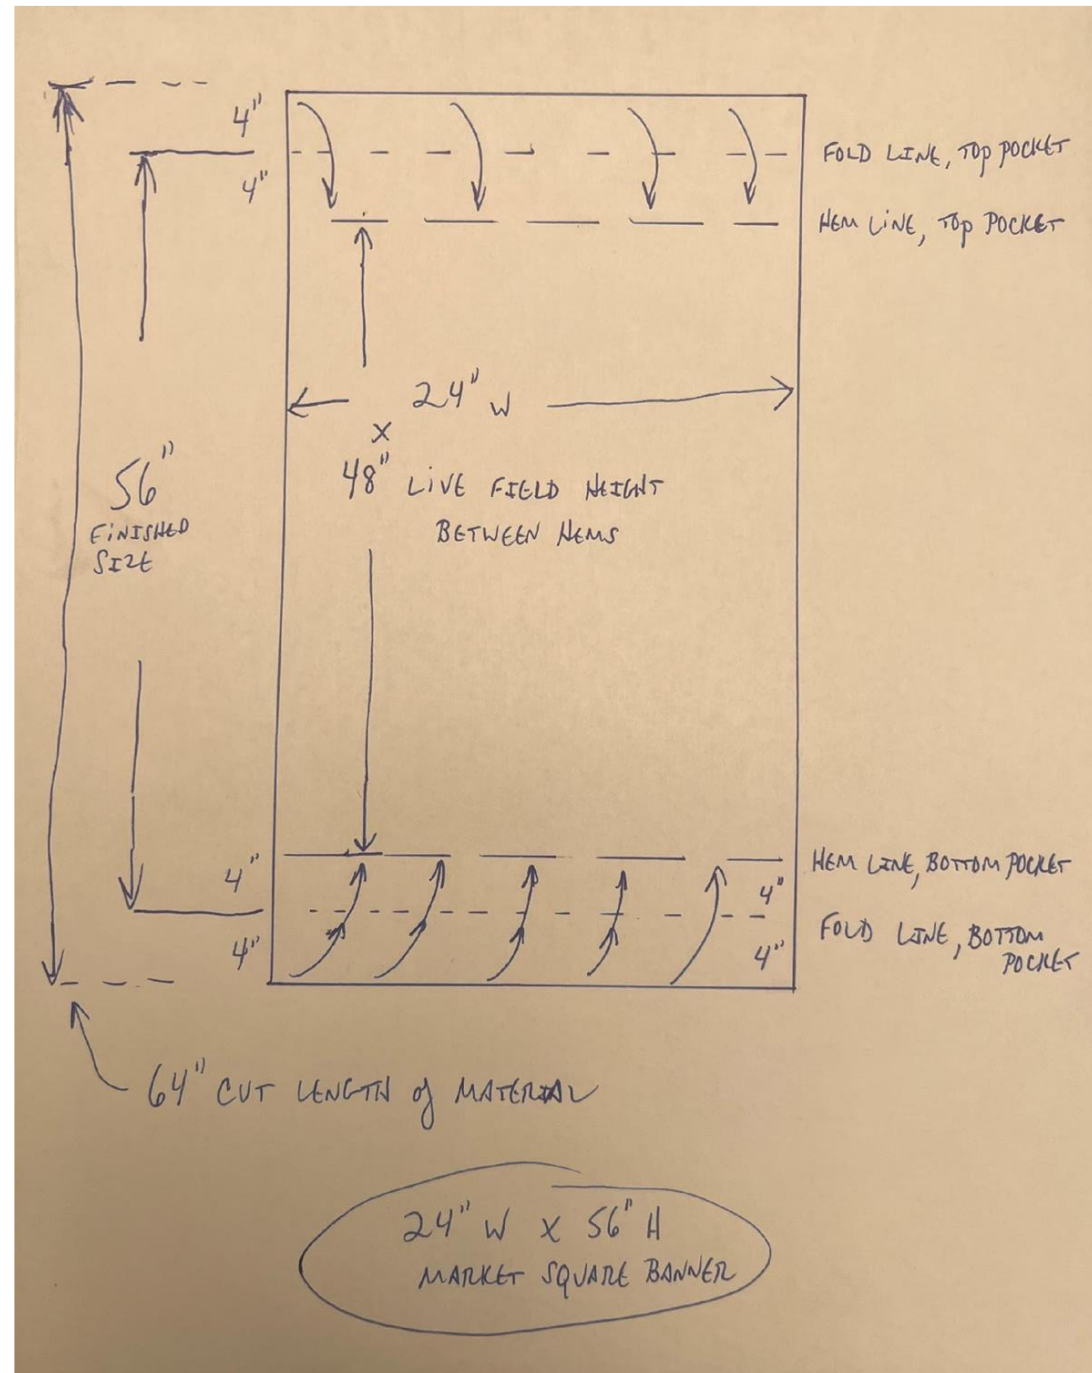 4"
FOLD LINE, TOP POCKET
4"
HEM LINE, TOP POCKET
24" W
X
48" LIVE FIELD HEIGHT
BETWEEN HEMS
56"
FINISHED
SIZE
4"
HEM LINE, BOTTOM POCKET
4"
4"
FOLD LINE, BOTTOM
POCKET
4"
64" CUT LENGTH of MATERIAL
24" W X 56" H
MARKET SQUARE BANNER